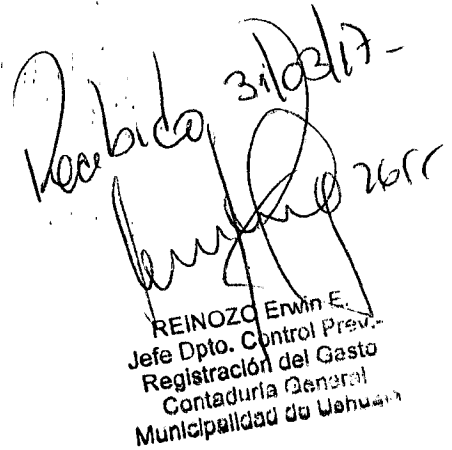 Recibido 31/03/17-
REINOZO Erwin E.
Jefe Dpto. Control Prev.-
Registración del Gasto
Contaduría General
Municipalidad de Ushuaia